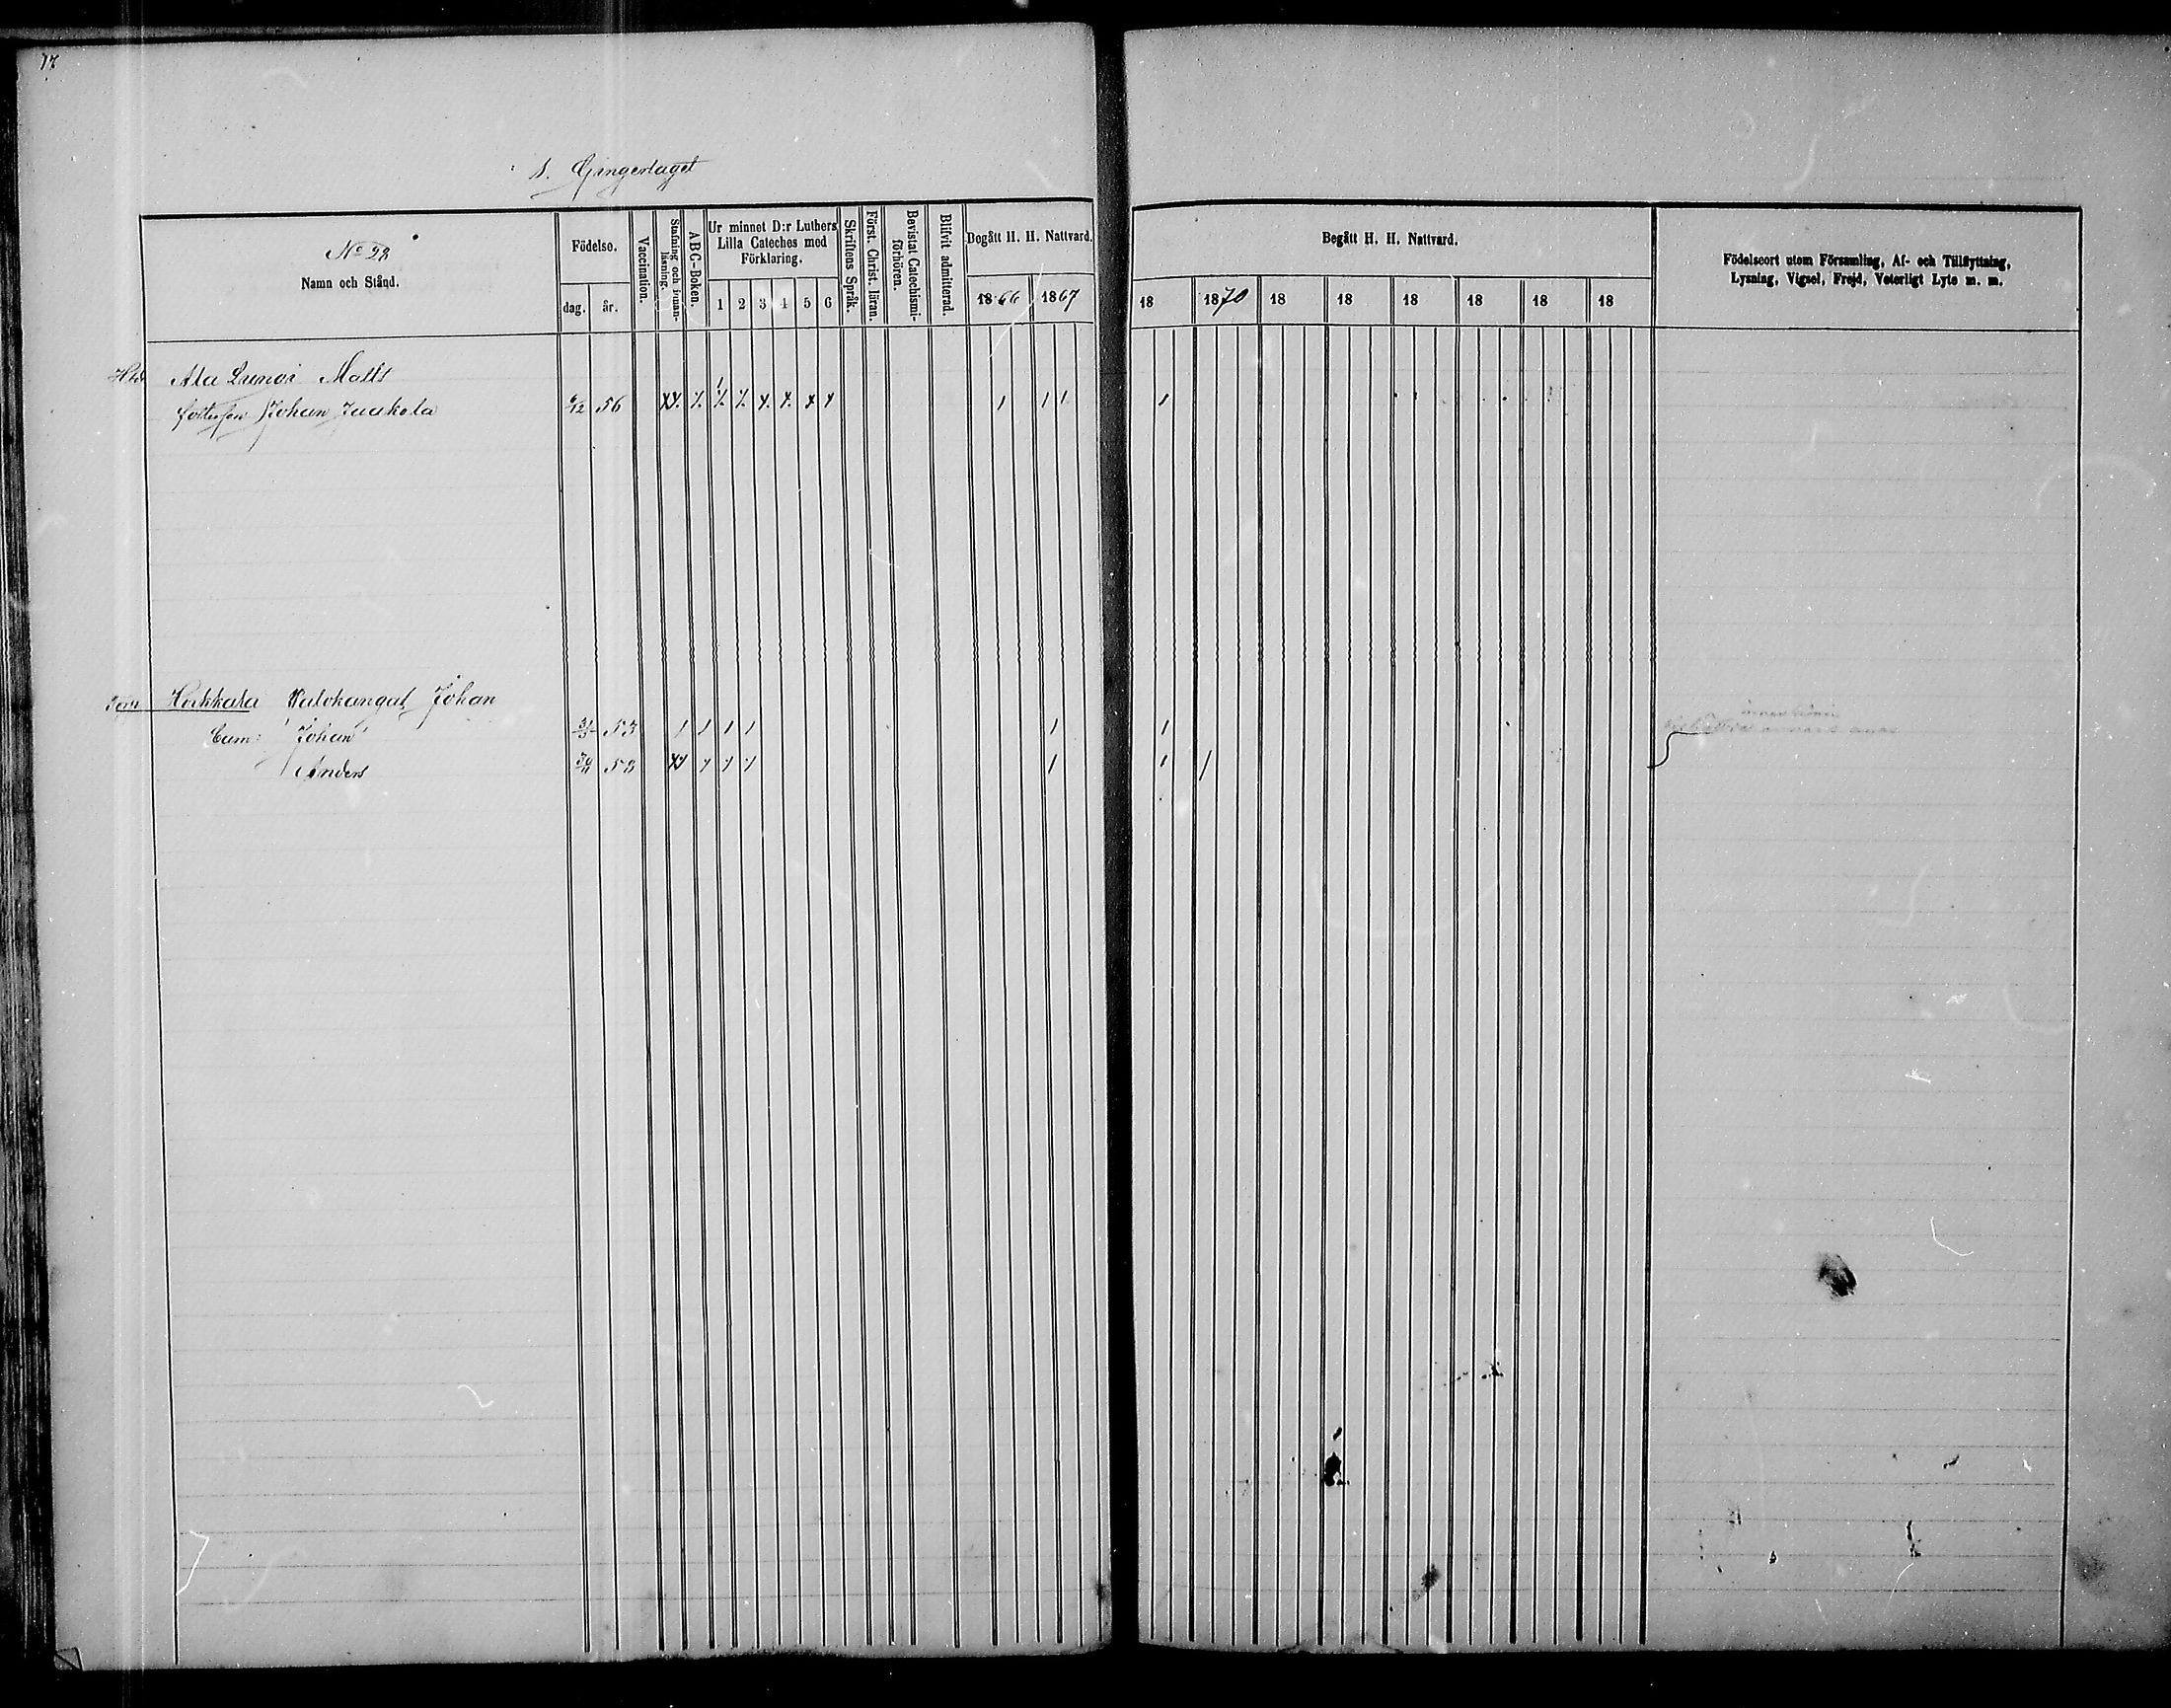 17
1. Gingerlaget
No 28
Namn och Stånd.
Födelse.
dag. år.
Vaccination.
Stafning och innanläsning.
ABC-Boken.
Ur minnet D:r Luthers Lilla Cateches med Förklaring.
1 2 3 4 5 6
Skriftens Språk.
Först. Christ. läran.
Bevistat Catechismiförhören.
Blifvit admitterad.
Begått H. H. Nattvard.
1866 1867
Begått H. H. Nattvard.
18 1870 18 18 18 18 18 18
Födelseort utom Församling, Af- och Tillflyttning,
Lysning, Vigsel, Frejd, Veterligt Lyte m. m.
Ala Matts
Johan Jaakola 6/12 56
Johan
Johan 53
Anders 30/11 58